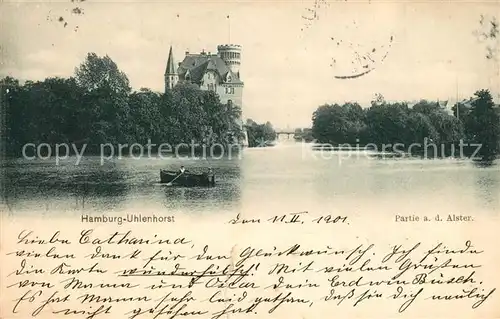 © copyright 4allposters.com
Hamburg-Uhlenhorst
Partie a. d. Alster.
den 11. II. 1901.
Liebe Catharina,
vielen dank für den Glückwunsch. Ich finde
die Karte wunderhübsch! Mit vielen Grüßen
von Mama und Oscar dein Erdwin Busch,
Es hat Mama sehr leid gethan, daß sie dich neulich
nicht gesehen hat.